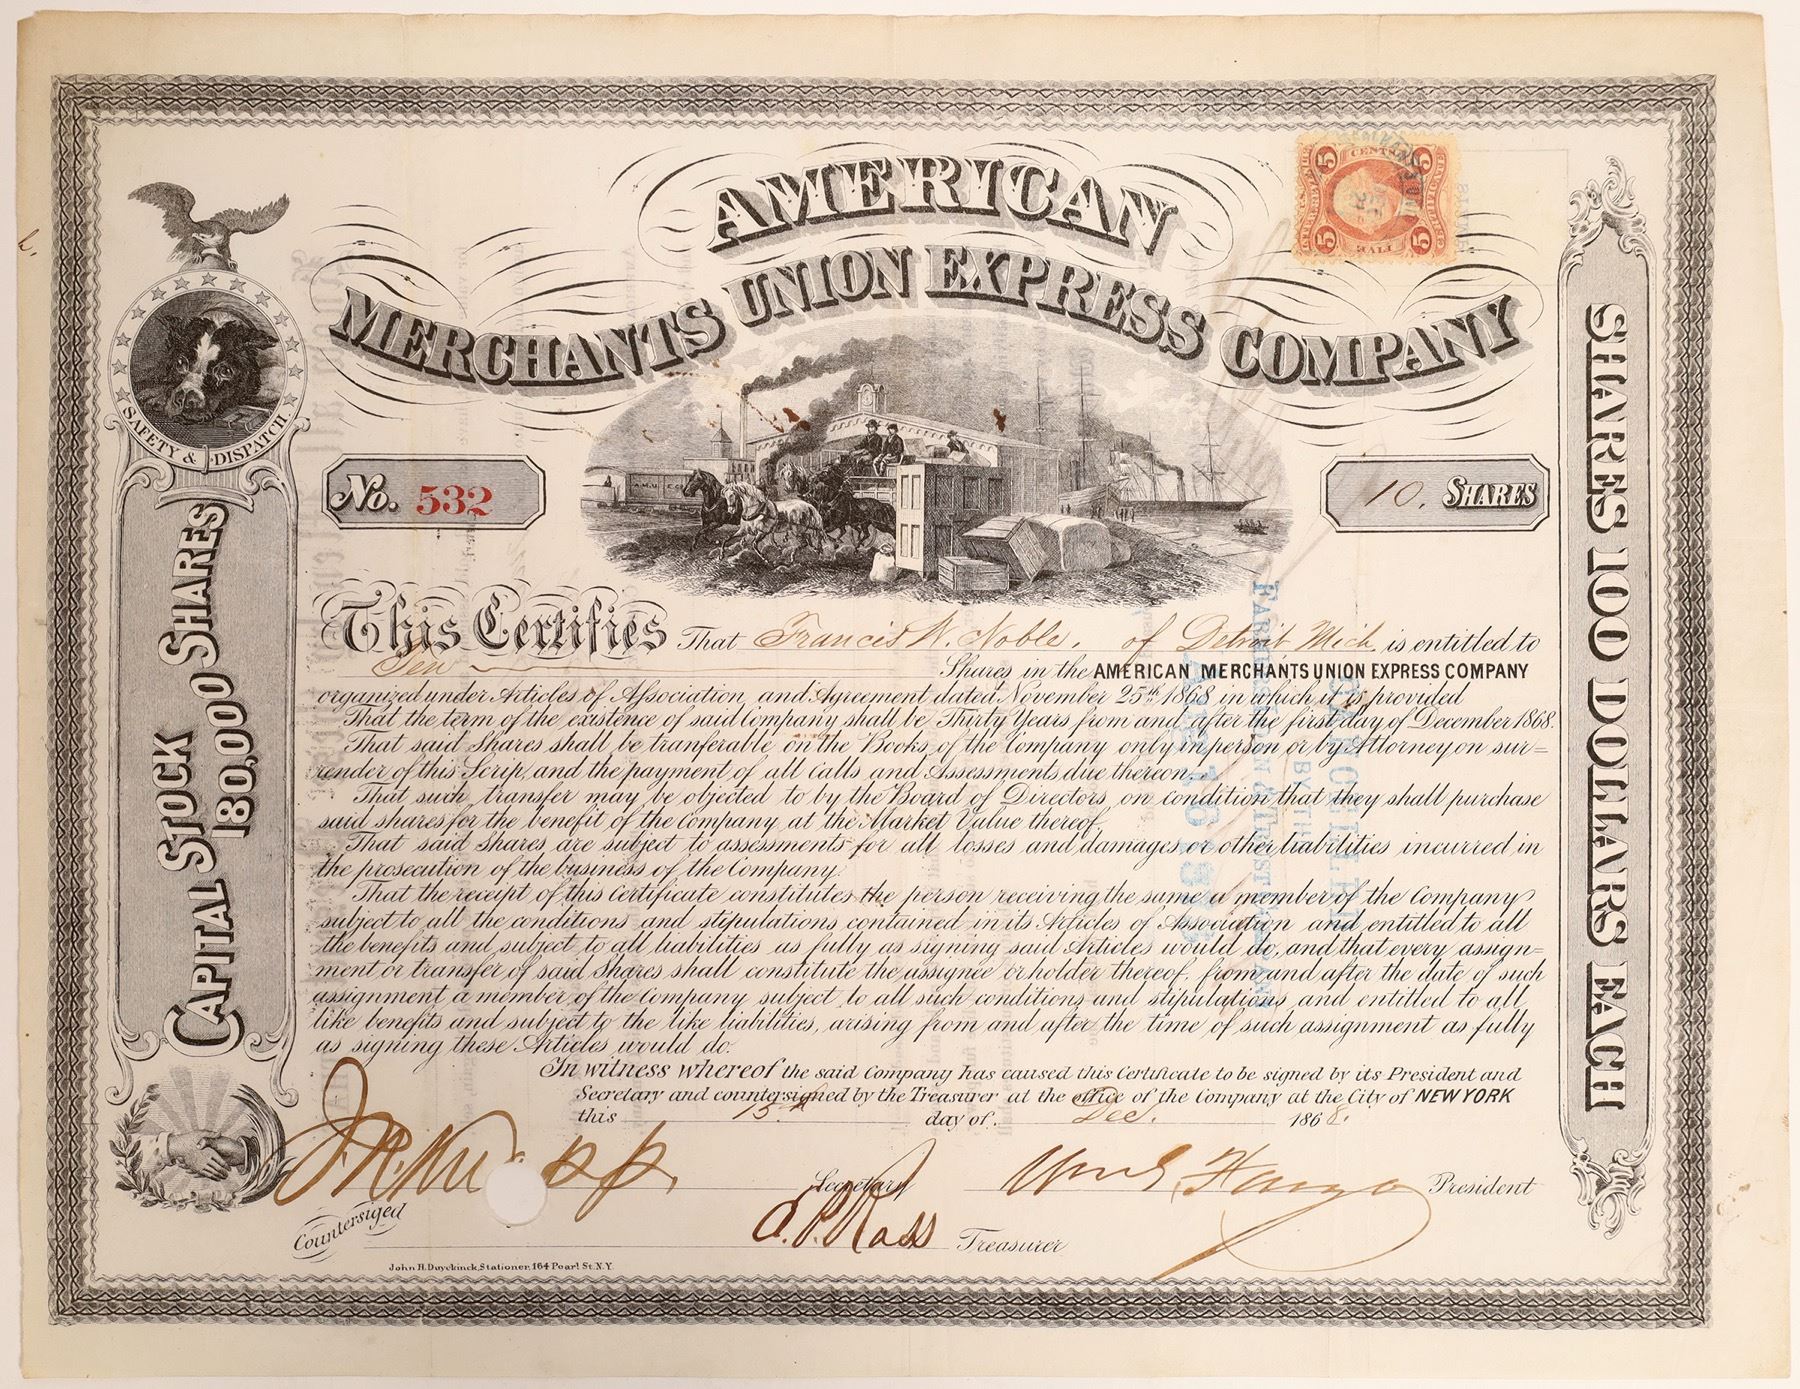 AMERICAN
MERCHANTS UNION EXPRESS COMPANY
5 CENTS 5
5 FIVE 5
SAFETY & DISPATCH
A.M.U.E.CO
No. 532
10. SHARES
CAPITAL STOCK 180,000 SHARES
SHARES 100 DOLLARS EACH
This Certifies That Francis W. Noble. of Detroit Mich is entitled to
Ten Shares in the AMERICAN MERCHANTS UNION EXPRESS COMPANY
organized under Articles of Association and Agreement dated November 25th 1868 in which it is provided
That the term of the existence of said Company shall be Thirty Years from and after the first day of December 1868.
That said Shares shall be tranferable on the Books of the Company only in person or by Attorney on sur=
render of this Scrip, and the payment of all Calls and Assessments due thereon.
That such transfer may be objected to by the Board of Directors, on condition that they shall purchase
said shares for the benefit of the Company at the Market Value thereof.
That said shares are subject to assessments for all losses and damages or other liabilities incurred in
the prosecution of the business of the Company.
That the receipt of this Certificate constitutes the person receiving the same a member of the Company
subject to all the conditions and stipulations contained in its Articles of Association and entitled to all
the benefits and subject to all liabilities as fully as signing said Articles would do, and that every assign=
ment or transfer of said Shares shall constitute the assignee or holder thereof, from and after the date of such
assignment a member of the Company subject to all such conditions and stipulations and entitled to all
like benefits and subject to the like liabilities, arising from and after the time of such assignment as fully
as signing these Articles would do.
In witness whereof the said Company has caused this Certificate to be signed by its President and
Secretary and countersigned by the Treasurer at the office of the Company at the City of NEW YORK
this 15th day of Dec. 1868.
Secretary Wm G. Fargo President
Countersiged A. P. Ross Treasurer
John H. Duyckinck, Stationer, 164 Pearl St. N.Y.
CANCELLED
BY THE